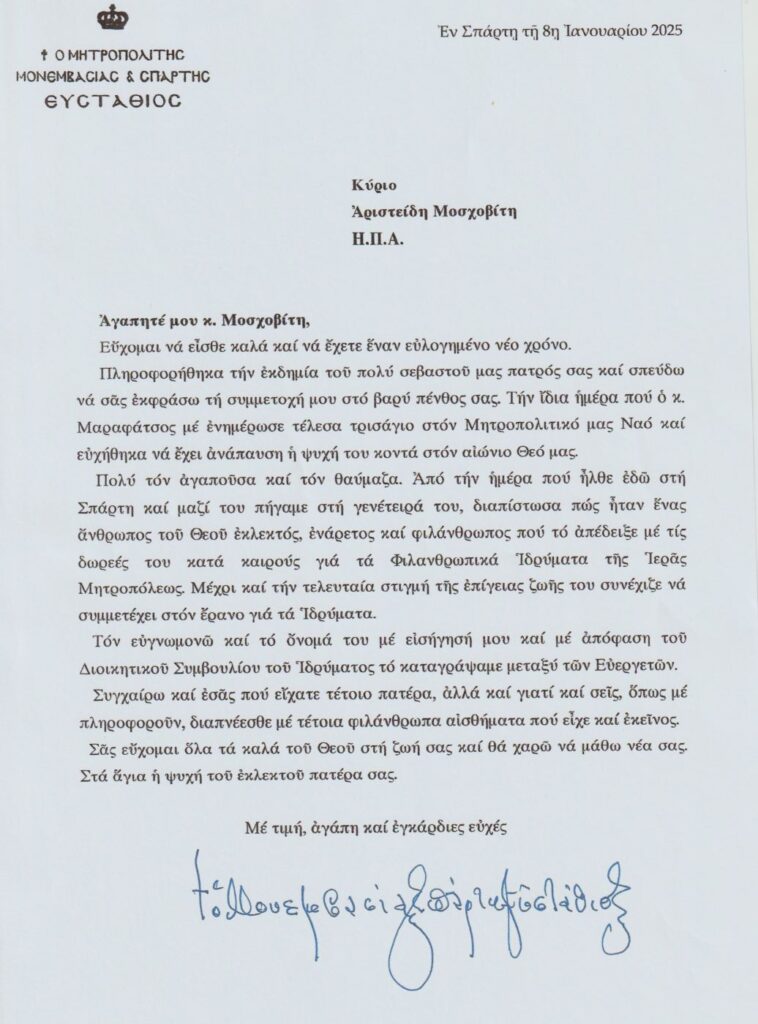 Ἐν Σπάρτῃ τῇ 8ῃ Ἰανουαρίου 2025
† Ο ΜΗΤΡΟΠΟΛΙΤΗΣ
ΜΟΝΕΜΒΑΣΙΑΣ & ΣΠΑΡΤΗΣ
ΕΥΣΤΑΘΙΟΣ
Κύριο
Ἀριστείδη Μοσχοβίτη
Η.Π.Α.
Ἀγαπητέ μου κ. Μοσχοβίτη,
Εὔχομαι νά εἶσθε καλά καί νά ἔχετε ἕναν εὐλογημένο νέο χρόνο.
Πληροφορήθηκα τήν ἐκδημία τοῦ πολύ σεβαστοῦ μας πατρός σας καί σπεύδω
νά σᾶς ἐκφράσω τή συμμετοχή μου στό βαρύ πένθος σας. Τήν ἴδια ἡμέρα πού ὁ κ.
Μαραφάτσος μέ ἐνημέρωσε τέλεσα τρισάγιο στόν Μητροπολιτικό μας Ναό καί
εὐχήθηκα νά ἔχει ἀνάπαυση ἡ ψυχή του κοντά στόν αἰώνιο Θεό μας.
Πολύ τόν ἀγαποῦσα καί τόν θαύμαζα. Ἀπό τήν ἡμέρα πού ἦλθε ἐδῶ στή
Σπάρτη καί μαζί του πήγαμε στή γενέτειρά του, διαπίστωσα πώς ἦταν ἕνας
ἄνθρωπος τοῦ Θεοῦ ἐκλεκτός, ἐνάρετος καί φιλάνθρωπος πού τό ἀπέδειξε μέ τίς
δωρεές του κατά καιρούς γιά τά Φιλανθρωπικά Ἱδρύματα τῆς Ἱερᾶς
Μητροπόλεως. Μέχρι καί τήν τελευταία στιγμή τῆς ἐπίγειας ζωῆς του συνέχιζε νά
συμμετέχει στόν ἔρανο γιά τά Ἱδρύματα.
Τόν εὐγνωμονῶ καί τό ὄνομά του μέ εἰσήγησή μου καί μέ ἀπόφαση τοῦ
Διοικητικοῦ Συμβουλίου τοῦ Ἱδρύματος τό καταγράψαμε μεταξύ τῶν Εὐεργετῶν.
Συγχαίρω καί ἐσᾶς πού εἴχατε τέτοιο πατέρα, ἀλλά καί γιατί καί σεῖς, ὅπως μέ
πληροφοροῦν, διαπνέεσθε μέ τέτοια φιλάνθρωπα αἰσθήματα πού εἶχε καί ἐκεῖνος.
Σᾶς εὔχομαι ὅλα τά καλά τοῦ Θεοῦ στή ζωή σας καί θά χαρῶ νά μάθω νέα σας.
Στά ἅγια ἡ ψυχή τοῦ ἐκλεκτοῦ πατέρα σας.
Μέ τιμή, ἀγάπη καί ἐγκάρδιες εὐχές